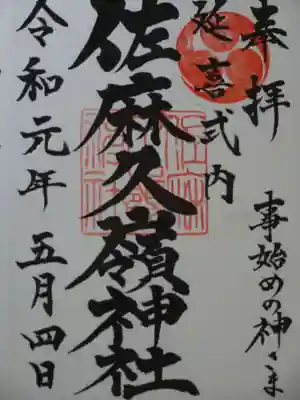 奉拝
事始めの神さま
延喜式内
佐麻久嶺神社
令和元年 五月四日